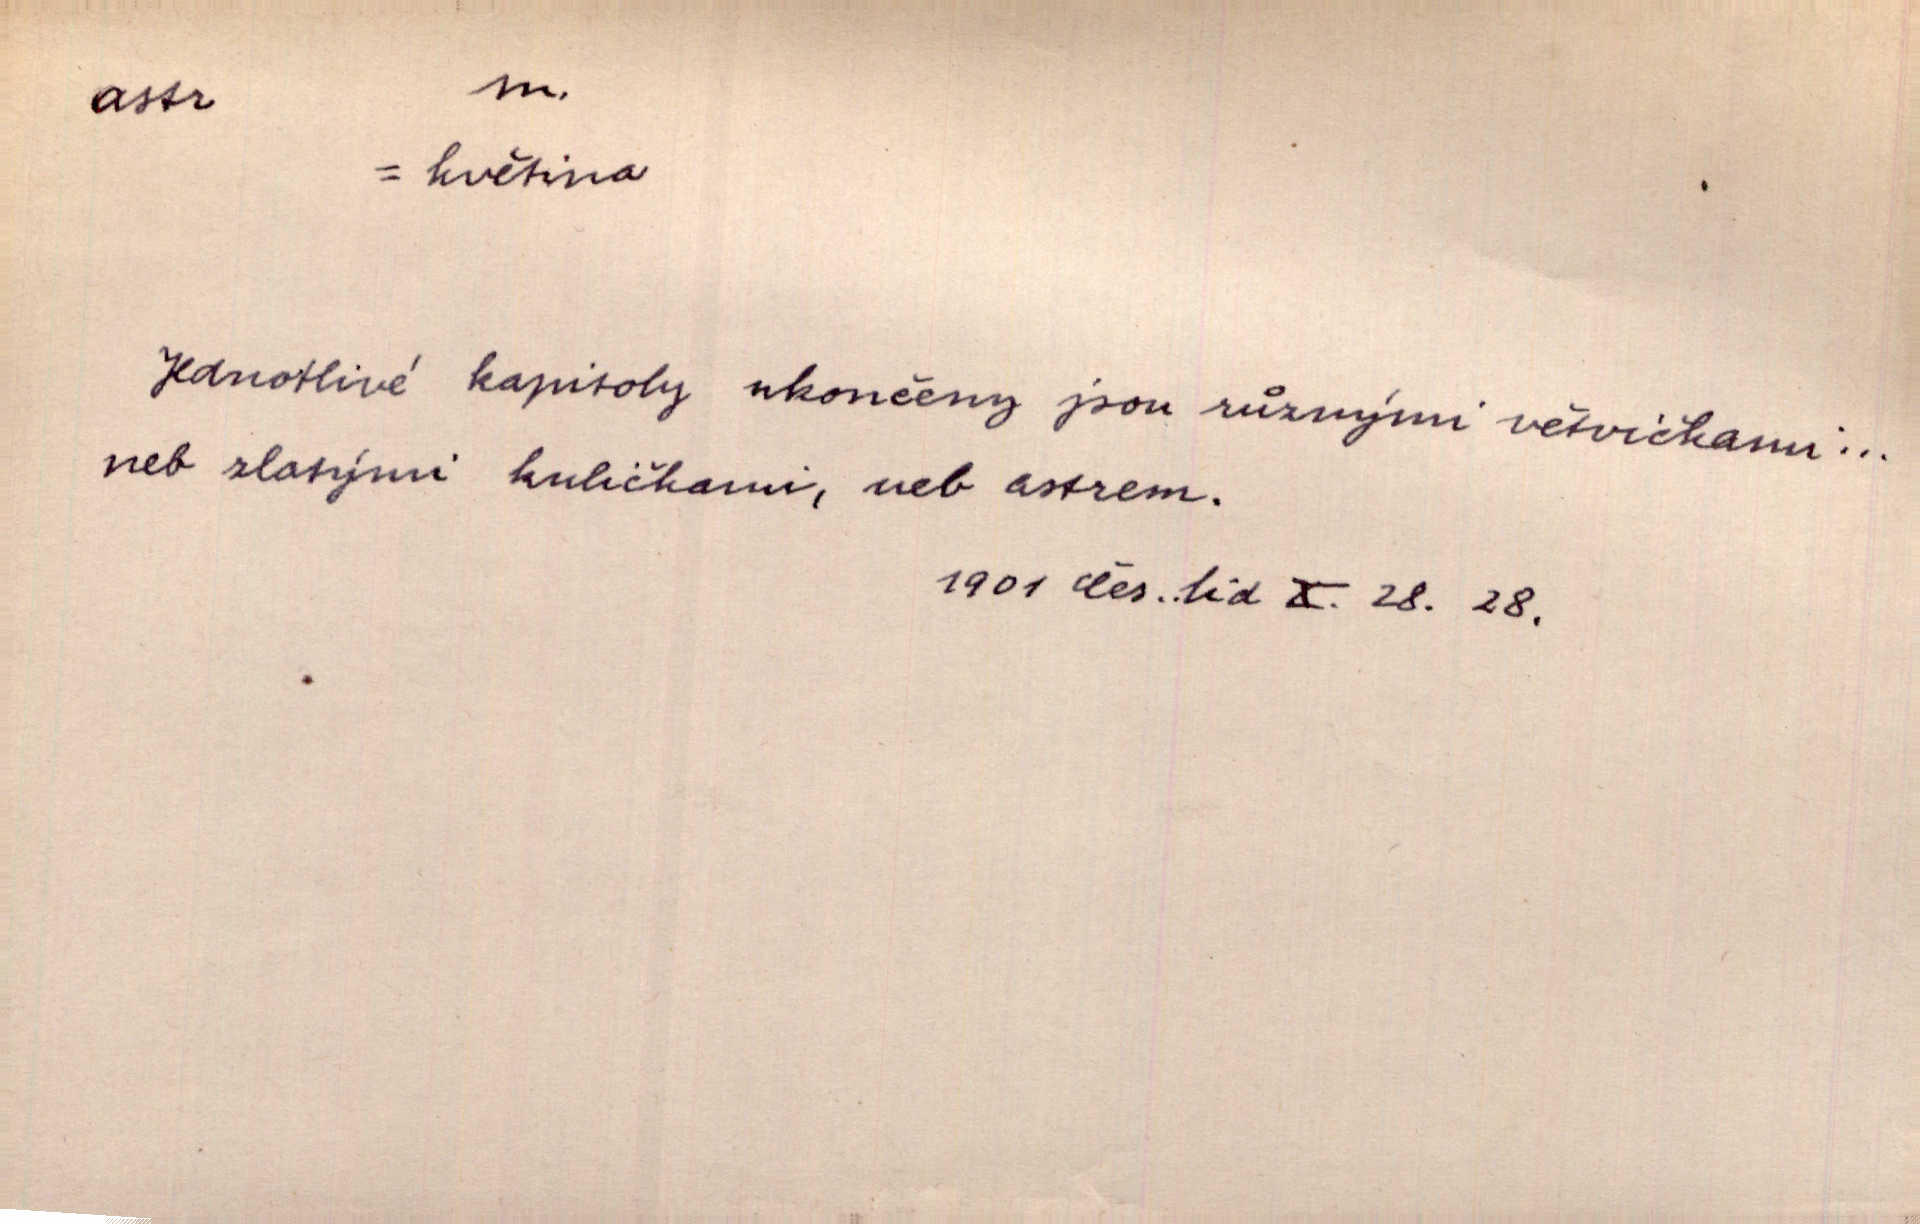 astr m.
= květina
Jednotlivé kapitoly ukončeny jsou různými větvičkami...
neb zlatými kuličkami, neb astrem.
1901 Čes. lid X. 28. 28.